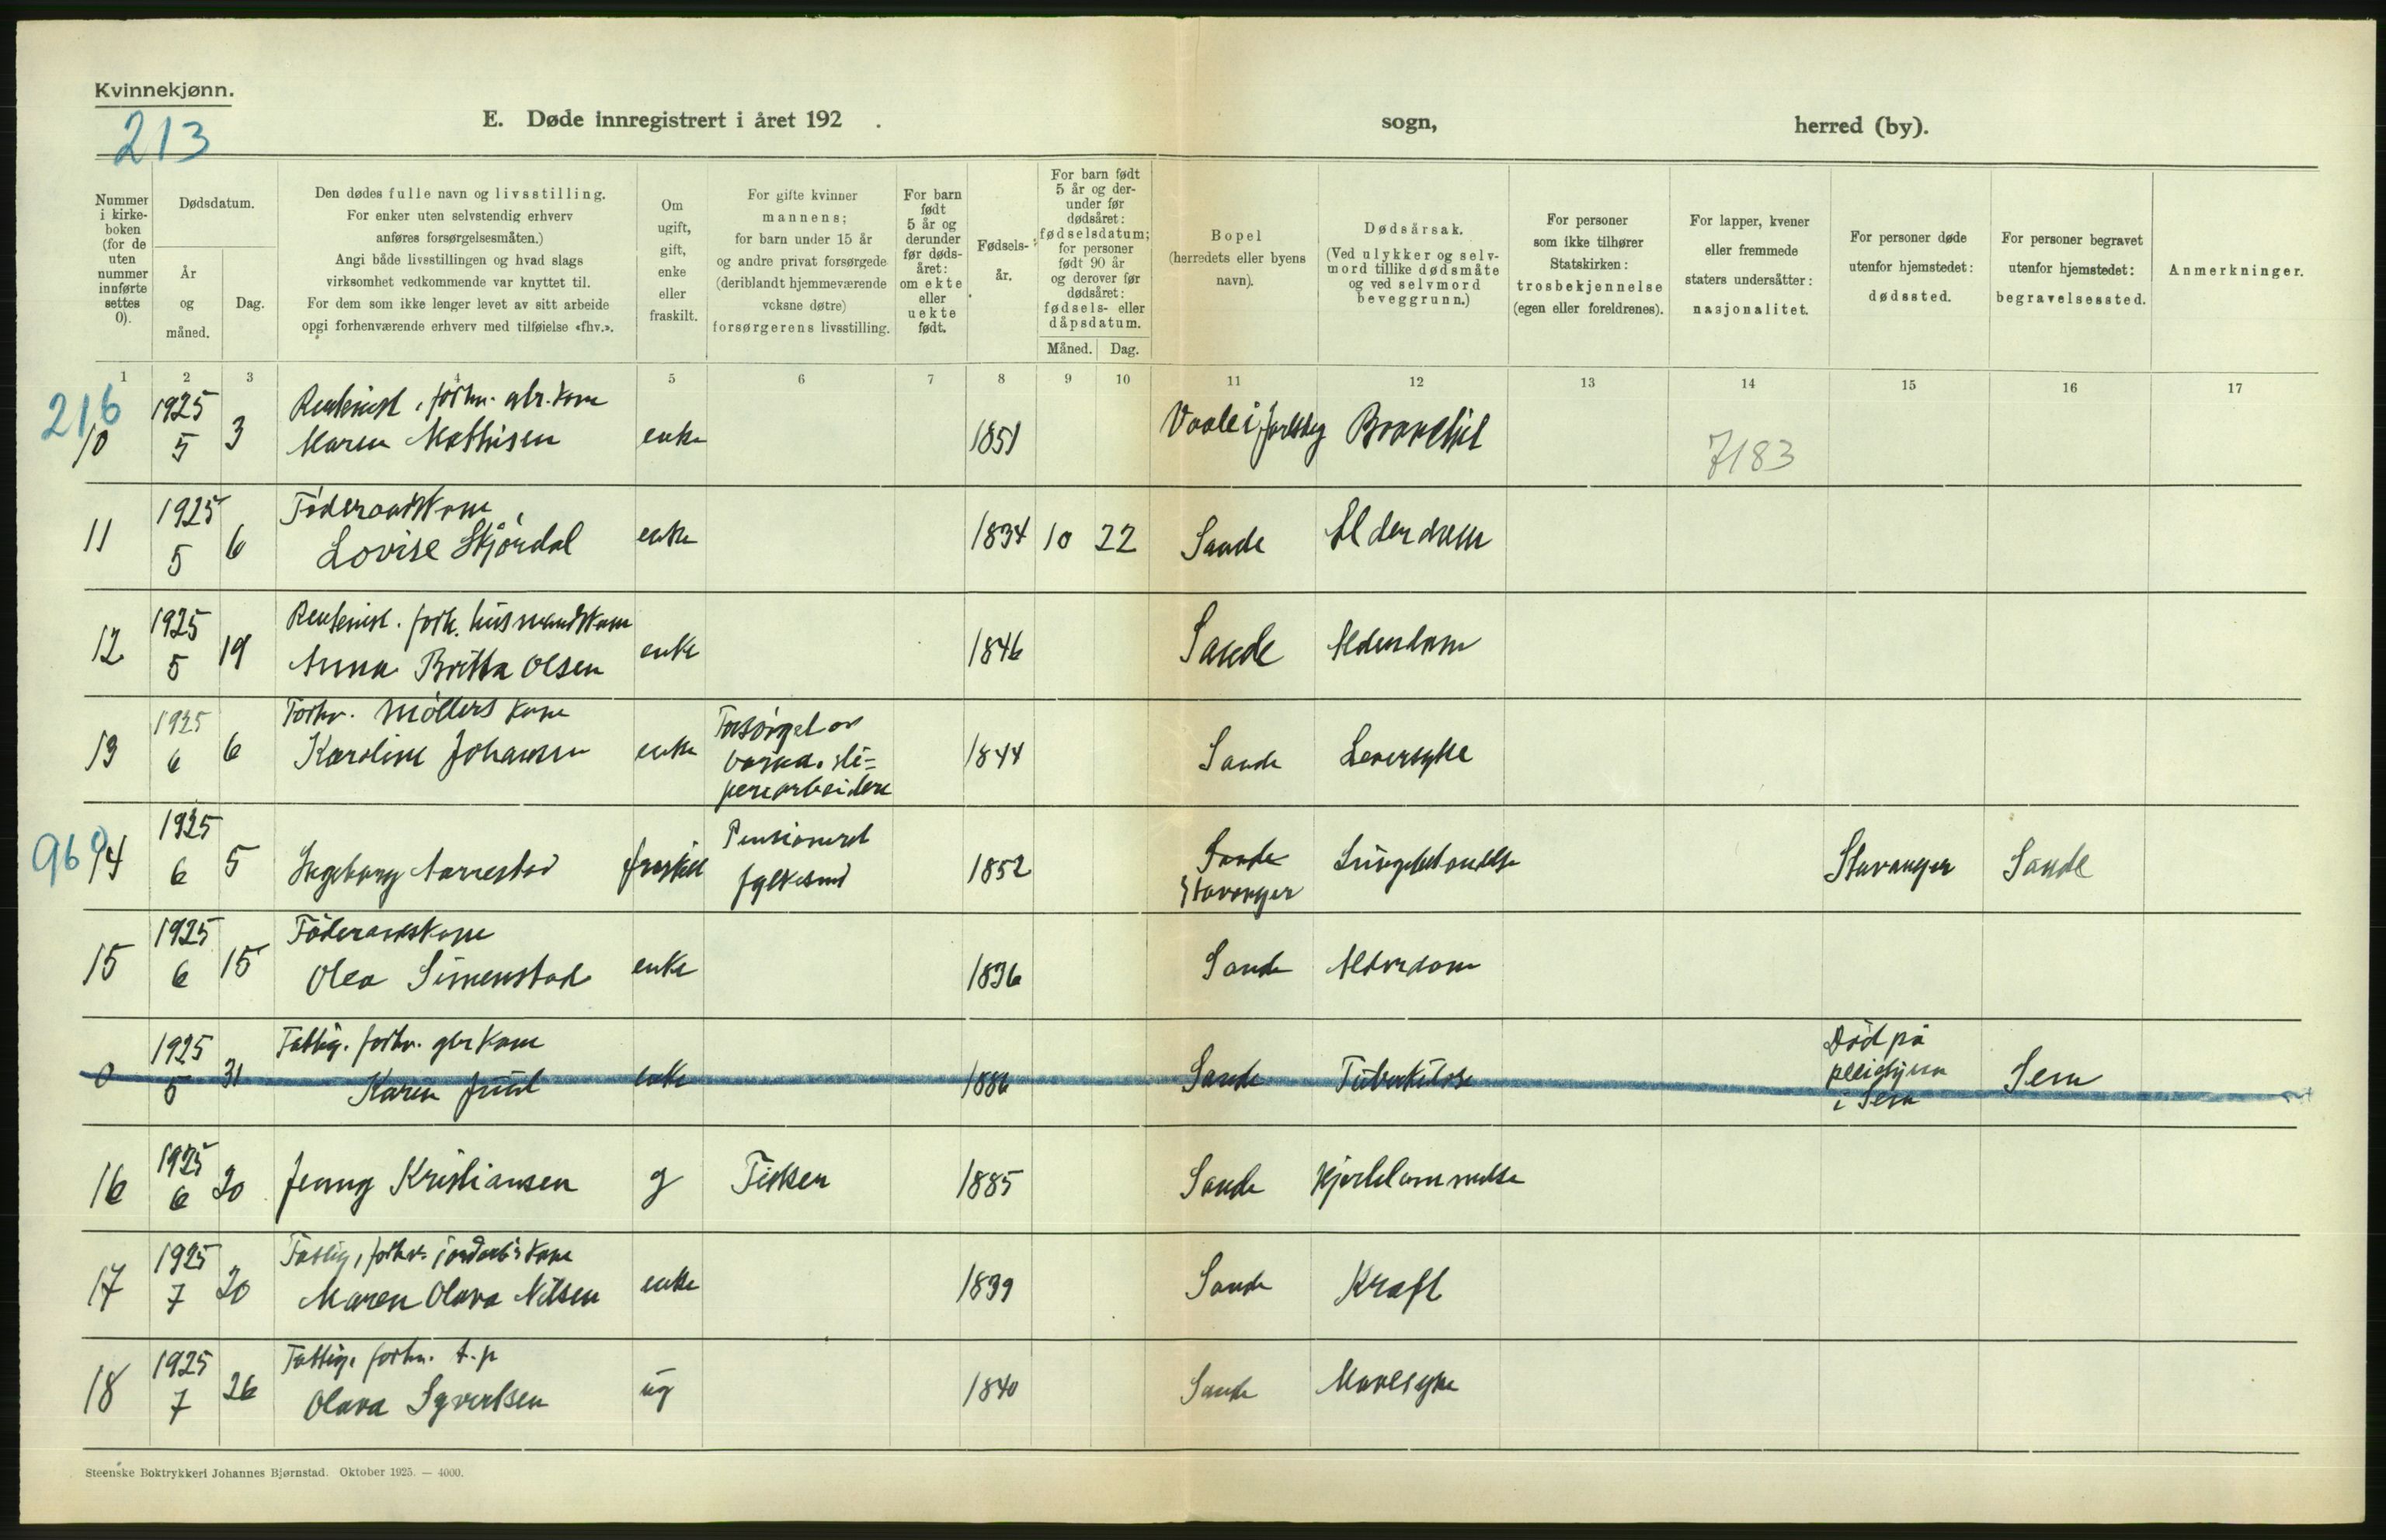 Kvinnekjønn.
213
E. Døde innregistrert i året 192 .
sogn,
herred (by).
Nummer
i kirke-
boken
(for de
uten
nummer
innførte
settes
0).
Dødsdatum.
År
og
måned.
Dag.
Den dødes fulle navn og livsstilling.
For enker uten selvstendig erhverv
anføres forsørgelsesmåten.)
Angi både livsstillingen og hvad slags
virksomhet vedkommende var knyttet til.
For dem som ikke lenger levet av sitt arbeide
opgi forhenværende erhverv med tilføielse «fhv.».
Om
ugift,
gift,
enke
eller
fraskilt.
For gifte kvinner
mannens;
for barn under 15 år
og andre privat forsørgede
(deriblandt hjemmeværende
voksne døtre)
forsørgerens livsstilling.
For barn
født
5 år og
derunder
før døds-
året:
om ekte
eller
uekte
født.
Fødsels-
år.
For barn født
5 år og der-
under før
dødsåret:
fødselsdatum;
for personer
født 90 år
og derover før
dødsåret:
fødsels- eller
dåpsdatum.
Måned. Dag.
Bopel
(herredets eller byens
navn).
Dødsårsak.
(Ved ulykker og selv-
mord tillike dødsmåte
og ved selvmord
beveggrunn.)
For personer
som ikke tilhører
Statskirken:
trosbekjennelse
(egen eller foreldrenes).
For lapper, kvener
eller fremmede
staters undersåtter:
nasjonalitet.
For personer døde
utenfor hjemstedet:
dødssted.
For personer begravet
utenfor hjemstedet:
begravelsessted.
Anmerkninger.
1 2 3 4 5 6 7 8 9 10 11 12 13 14 15 16 17
216
1925 forhv. gbr. kone
10 5 3 Maren Mathisen enke 1851 Vaale i Jarlsberg
7183
1925 Föderaadskone,
11 5 6 Lovise Skjördal enke 1834 10 22 Sande Alderdom
1925 forh. husmandskone
12 5 19 Anna Britta Olsen enke 1846 Sande Alderdom
1925 Forhv. Møllers kone Forsörget av
13 6 6 Karoline Johansen enke 1844 Sande Leversyke
960
1925 Pensioneret
14 6 5 Ingeborg Aarrestad fraskilt 1852 Sande Stavanger Sande
Stavanger
1925 Föderaadskone
15 6 15 Olea Simenstad enke 1836 Sande Alderdom
1925 Fattig. forhv. gbr kone Död på
0 5 31 Karen Juul enke 1886 Sande Tuberkulose pleiehjem Sem
i Sem
1925
16 6 20 Jenny Kristiansen g Fisker 1885 Sande Hjertelammelse
1925 Fattig, forhv. jordarb's kone
17 7 20 Maren Olava Nilsen enke 1839 Sande Kræft
1925 Fattig. forhv. t.p
18 7 26 Olava Syvertsen ug 1840 Sande Mavesyke
Steenske Boktrykkeri Johannes Bjørnstad. Oktober 1925. — 4000.